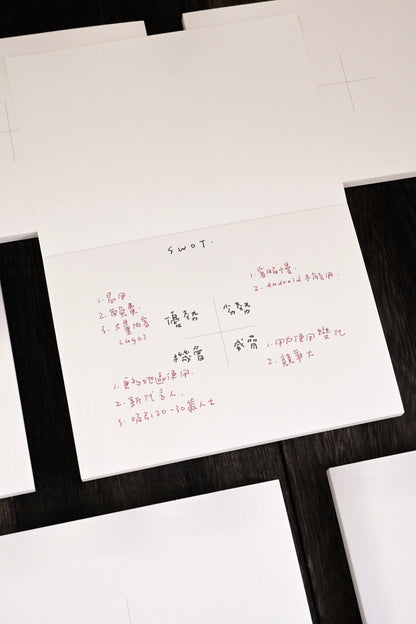 SWOT.
1. 易用
2. 免費
3. 大量內容
(UGC)
優勢
1.
2. Android 不能用
劣勢
機會
1. 更多地區使用
2. 新代言人
3. 吸引20-30歲人士
威脅
1. 用戶使用變化
2. 競爭大